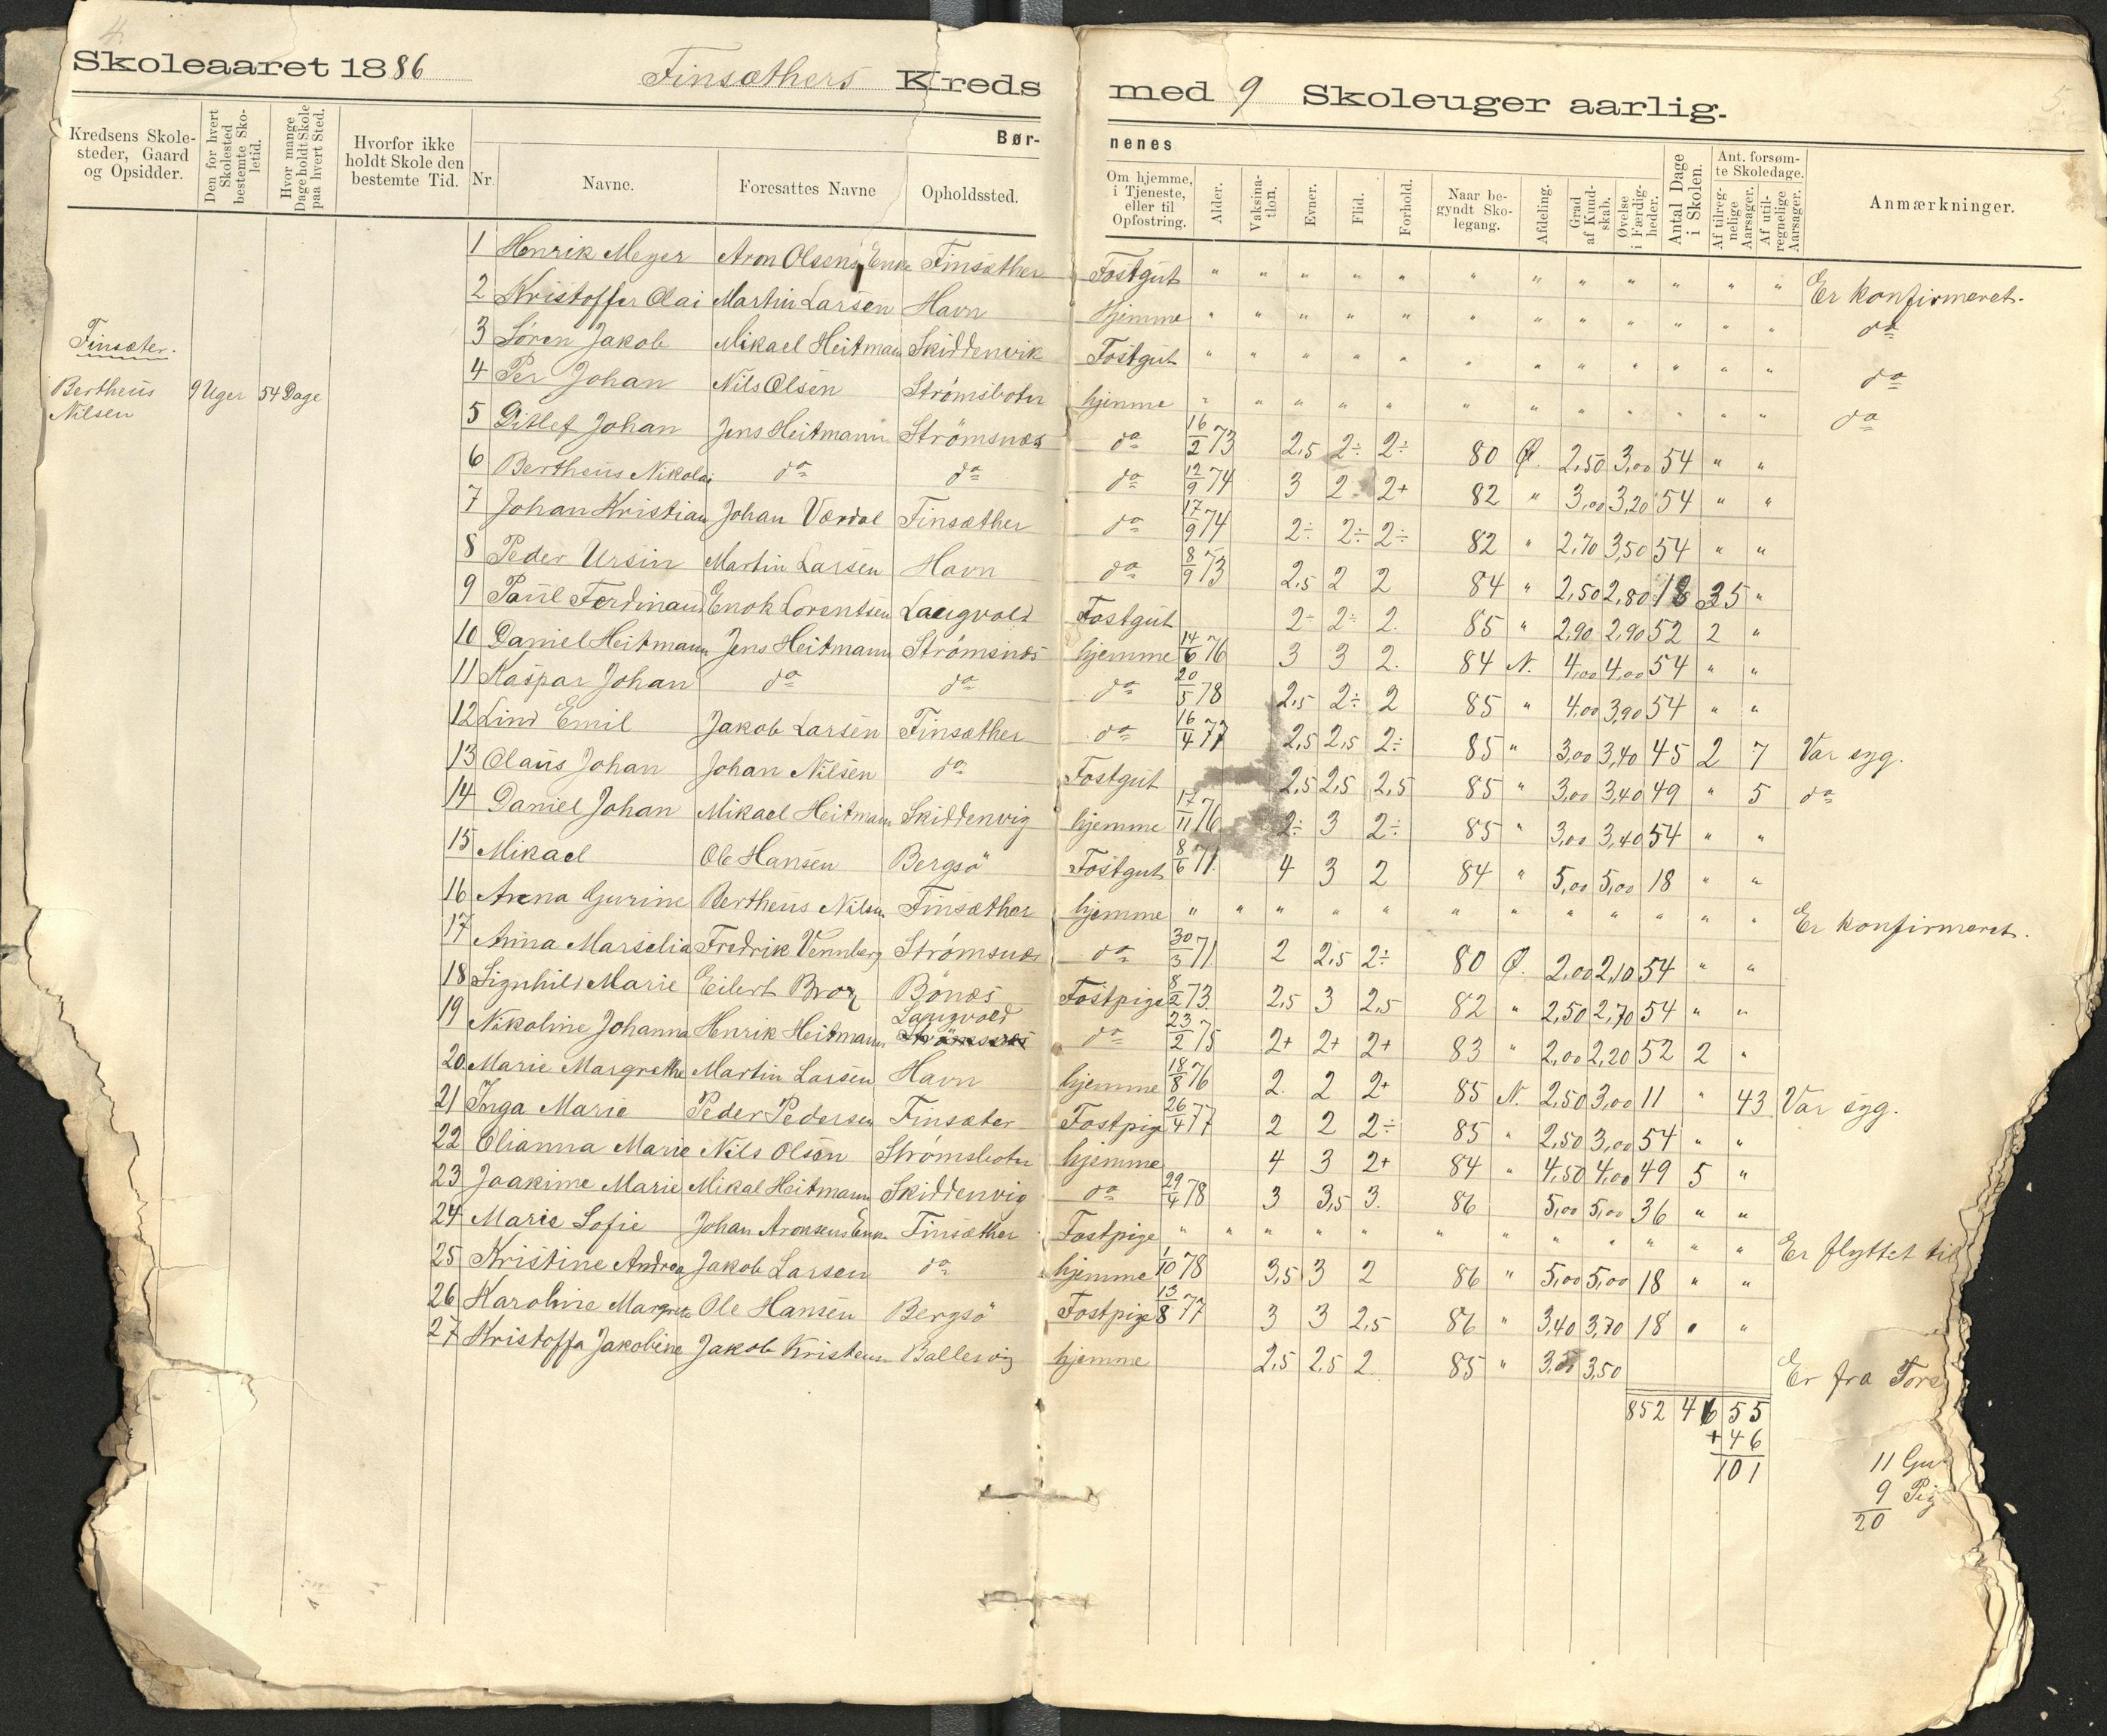 4.
Skoleaaret 1886 Finsæthers Kreds med 9 Skoleuger aarlig.
5.
Kredsens Skolesteder, Gaard og Opsidder.
Den for hvert Skolested bestemte Skoletid.
Hvor mange Dage holdt Skole paa hvert Sted.
Hvorfor ikke holdt Skole den bestemte Tid.
Børnenes
Nr. Navne. Foresattes Navne Opholdssted.
Om hjemme, i Tjeneste, eller til Opfostring.
Alder. Vaksination. Evner. Flid. Forhold.
Naar begyndt Skolegang.
Afdeling. Grad af Kundskab. Øvelse i Færdigheder.
Antal Dage i Skolen.
Ant. forsømte Skoledage.
Af tilregnelige Aarsager. Af utilregnelige Aarsager.
Anmærkninger.
Finsæter.
Bertheus Nilsen 9 Uger 54 Dage
1 Henrik Meyer Aron Olsens Enke Finsæther Fostgut " " " " " " " " " " " " Er konfirmeret.
2 Kristoffer Olai Martin Larsen Havn hjemme " " " " " " " " " " " " do
3 Søren Jakob Mikael Heitmann Skiddenvik Fostgut " " " " " " " " " " " " do
4 Per Johan Nils Olsen Strømsbotn hjemme " " " " " " " " " " " " do
5 Ditlef Johan Jens Heitmann Strømsnæs do 16/2 73 2,5 2÷ 2÷ 80 Ø. 2,50 3,00 54 " "
6 Bertheus Nikolai do do do 12/9 74 3 2 2+ 82 " 3,00 3,20 54 " "
7 Johan Kristian Johan Værdal Finsæther do 17/9 74 2÷ 2÷ 2÷ 82 " 2,70 3,50 54 " "
8 Peder Ursin Martin Larsen Havn do 8/9 73 2,5 2 2 84 " 2,50 2,80 18 35 "
9 Paul Ferdinand Enok Lorentsen Langvold Fostgut 2÷ 2÷ 2. 85 " 2,90 2,90 52 2 "
10 Daniel Heitmann Jens Heitmann Strømsnæs hjemme 14/6 76 3 3 2. 84 N. 4,00 4,00 54 " "
11 Kaspar Johan do do do 20/5 78 2,5 2÷ 2 85 " 4,00 3,90 54 " "
12 Lind Emil Jakob Larsen Finsæther do 16/4 77 2,5 2,5 2÷ 85 " 3,00 3,40 45 2 7 Var syg.
13 Olaus Johan Johan Nilsen do Fostgut 2,5 2,5 2,5 85 " 3,00 3,40 49 " 5 do
14 Daniel Johan Mikael Heitmann Skiddenvig hjemme 17/11 76 2÷ 3 2÷ 85 " 3,00 3,40 54 " "
15 Mikael Ole Hansen Bergsö Fostgut 8/6 71. 4 3 2 84 " 5,00 5,00 18 " "
16 Anna Gurine Bertheus Nilsen Finsæther hjemme " " " " " " " " " " " " Er konfirmeret.
17 Anna Marselia Fredrik Vennberg Strømsnæs do 30/3 71 2 2,5 2÷ 80 Ø. 2,00 2,10 54 " "
18 Signhild Marie Eilert Brox Bönæs Fostpige 8/2 73. 2,5 3 2,5 82 " 2,50 2,70 54 " "
19 Nikoline Johanna Henrik Heitmann Langvold Strömsnæs do 23/2 75 2+ 2+ 2+ 83 " 2,00 2,20 52 2 "
20. Marie Margrethe Martin Larsen Havn hjemme 18/8 76 2. 2 2+ 85 N. 2,50 3,00 11 " 43 Var syg.
21 Inga Marie Peder Pedersen Finsæter Fostpige 26/4 77 2 2 2÷ 85 " 2,50 3,00 54 " "
22 Elianna Marie Nils Olsen Strømsbotn hjemme 4 3 2+ 84 " 4,50 4,00 49 5 "
23 Joakime Marie Mikal Heitmann Skiddenvig do 29/4 78 3 3,5 3. 86 5,00 5,00 36 " "
24 Marie Sofie Johan Aronsens Enke Finsæther Fostpige " " " " " " " " " " " " Er flyttet til
25 Kristine Andrea Jakob Larsen do hjemme 1/10 78 3,5 3 2 86 " 5,00 5,00 18 " "
26 Karoline Margrete Ole Hansen Bergsö Fostpige 13/8 77 3 3 2,5 86 " 3,40 3,70 18 " "
27 Kristoffa Jakobine Jakob Kristensen Ballesvig hjemme 2,5 2,5 2. 85 " 3,50 Er fra Tors
852 46 55
+46
101
11 Gu
9 Pig
20